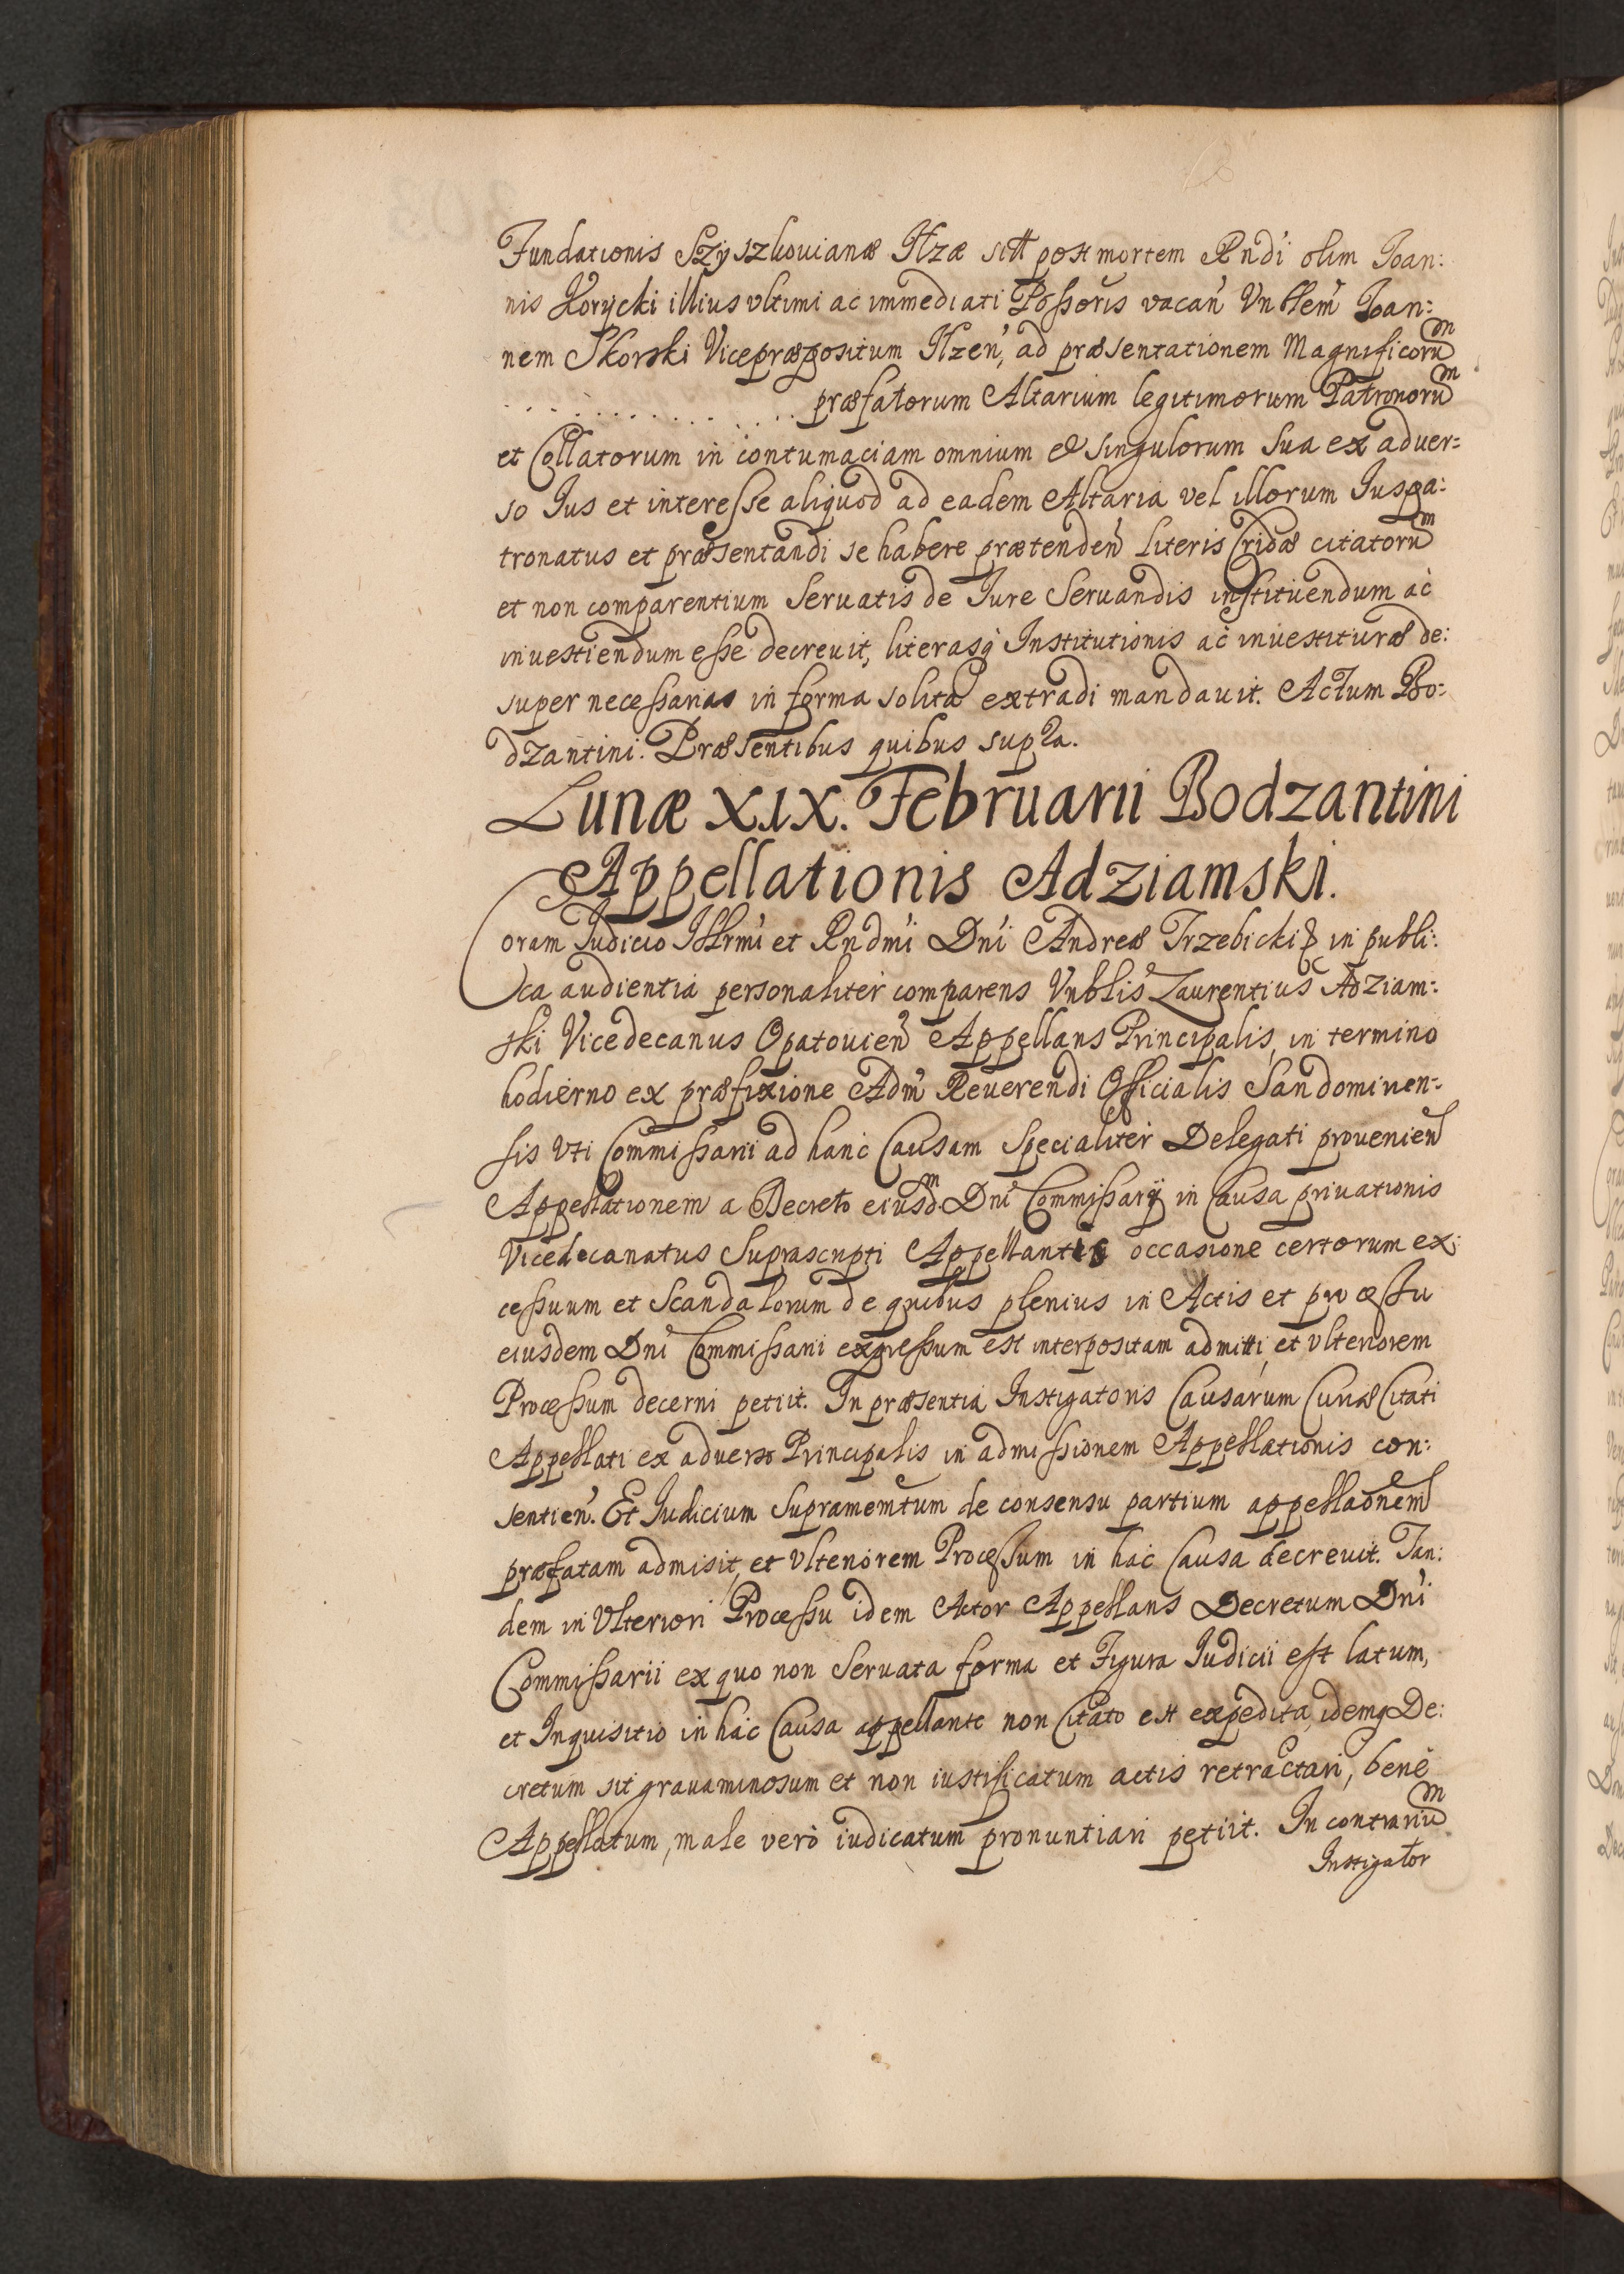 Fundationis Szyszkouianæ Ilzæ sitt post mortem Rndi olim Joan:
nis Korycki illius vltimi ac immediati Possoris vacan̄ Vnblem Joan:
nem Skorski Vicepræpositum Ilzen̄, ad præsentationem Magnificorum
. . . . . . . . . . . . . . præfatorum Altarium legitimorum Patronorum
et Collatorum in contumaciam omnium & singulorum sua ex aduer=
so Jus et interesse aliquod ad eadem Altaria vel illorum Juspa:
tronatus et præsentandi se habere prætenden̄ literis Cridæ citatorum
et non comparentium Seruatis de Jure Seruandis instituendum ac
inuestiendum esse decreuit, literasq Institutionis ac inuestituræ de:
super necessarias in forma solita extradi mandauit. Actum Bo=
dzantini. Præsentibus quibus supra.
Lunæ XIX. Februarii Bodzantini
Appellationis Adziamski.
Coram Judicio Illrmi et Rndmi Dni Andreæ Trzebicki & in publi:
ca audientia personaliter comparens Vnblis Laurentius Adziam:
ski Vicedecanus Opatouien̄ Appellans Principalis, in termino
hodierno ex præfixione Adm̄ Reuerendi Officialis Sandomiren=
sis vti Commissarii ad hanc Causam Specialiter Delegati prouenien̄
Appellationem a Decreto eiusdm Dni Commissarij in causa priuationis
Vicedecanatus Suprascripti Appellantis occasione certorum ex:
cessuum et Scandalorum de quibus plenius in Actis et processu
eiusdem Dni Commissarii expressum est interpositam admitti, et vlteriorem
Processum decerni petiit. In præsentia Instigatoris Causarum Curiæ Citati
Appellati ex aduerso Principalis in admissionem Appellationis con:
sentien̄. Et Judicium Supramemtum de consensu partium appellaonem
præfatam admisit, et vlteriorem Processum in hac Causa decreuit. Tan:
dem in Vlteriori Processu idem Actor Appellans Decretum Dni
Commissarii ex quo non Seruata forma et Figura Judicii est latum,
et Inquisitio in hac Causa appellante non Citato est expedita, idemq De:
cretum sit grauaminosum et non iustificatum actis retractari, bene
Appellatum, male verò iudicatum pronuntiari petiit. In contrarium
Instigator